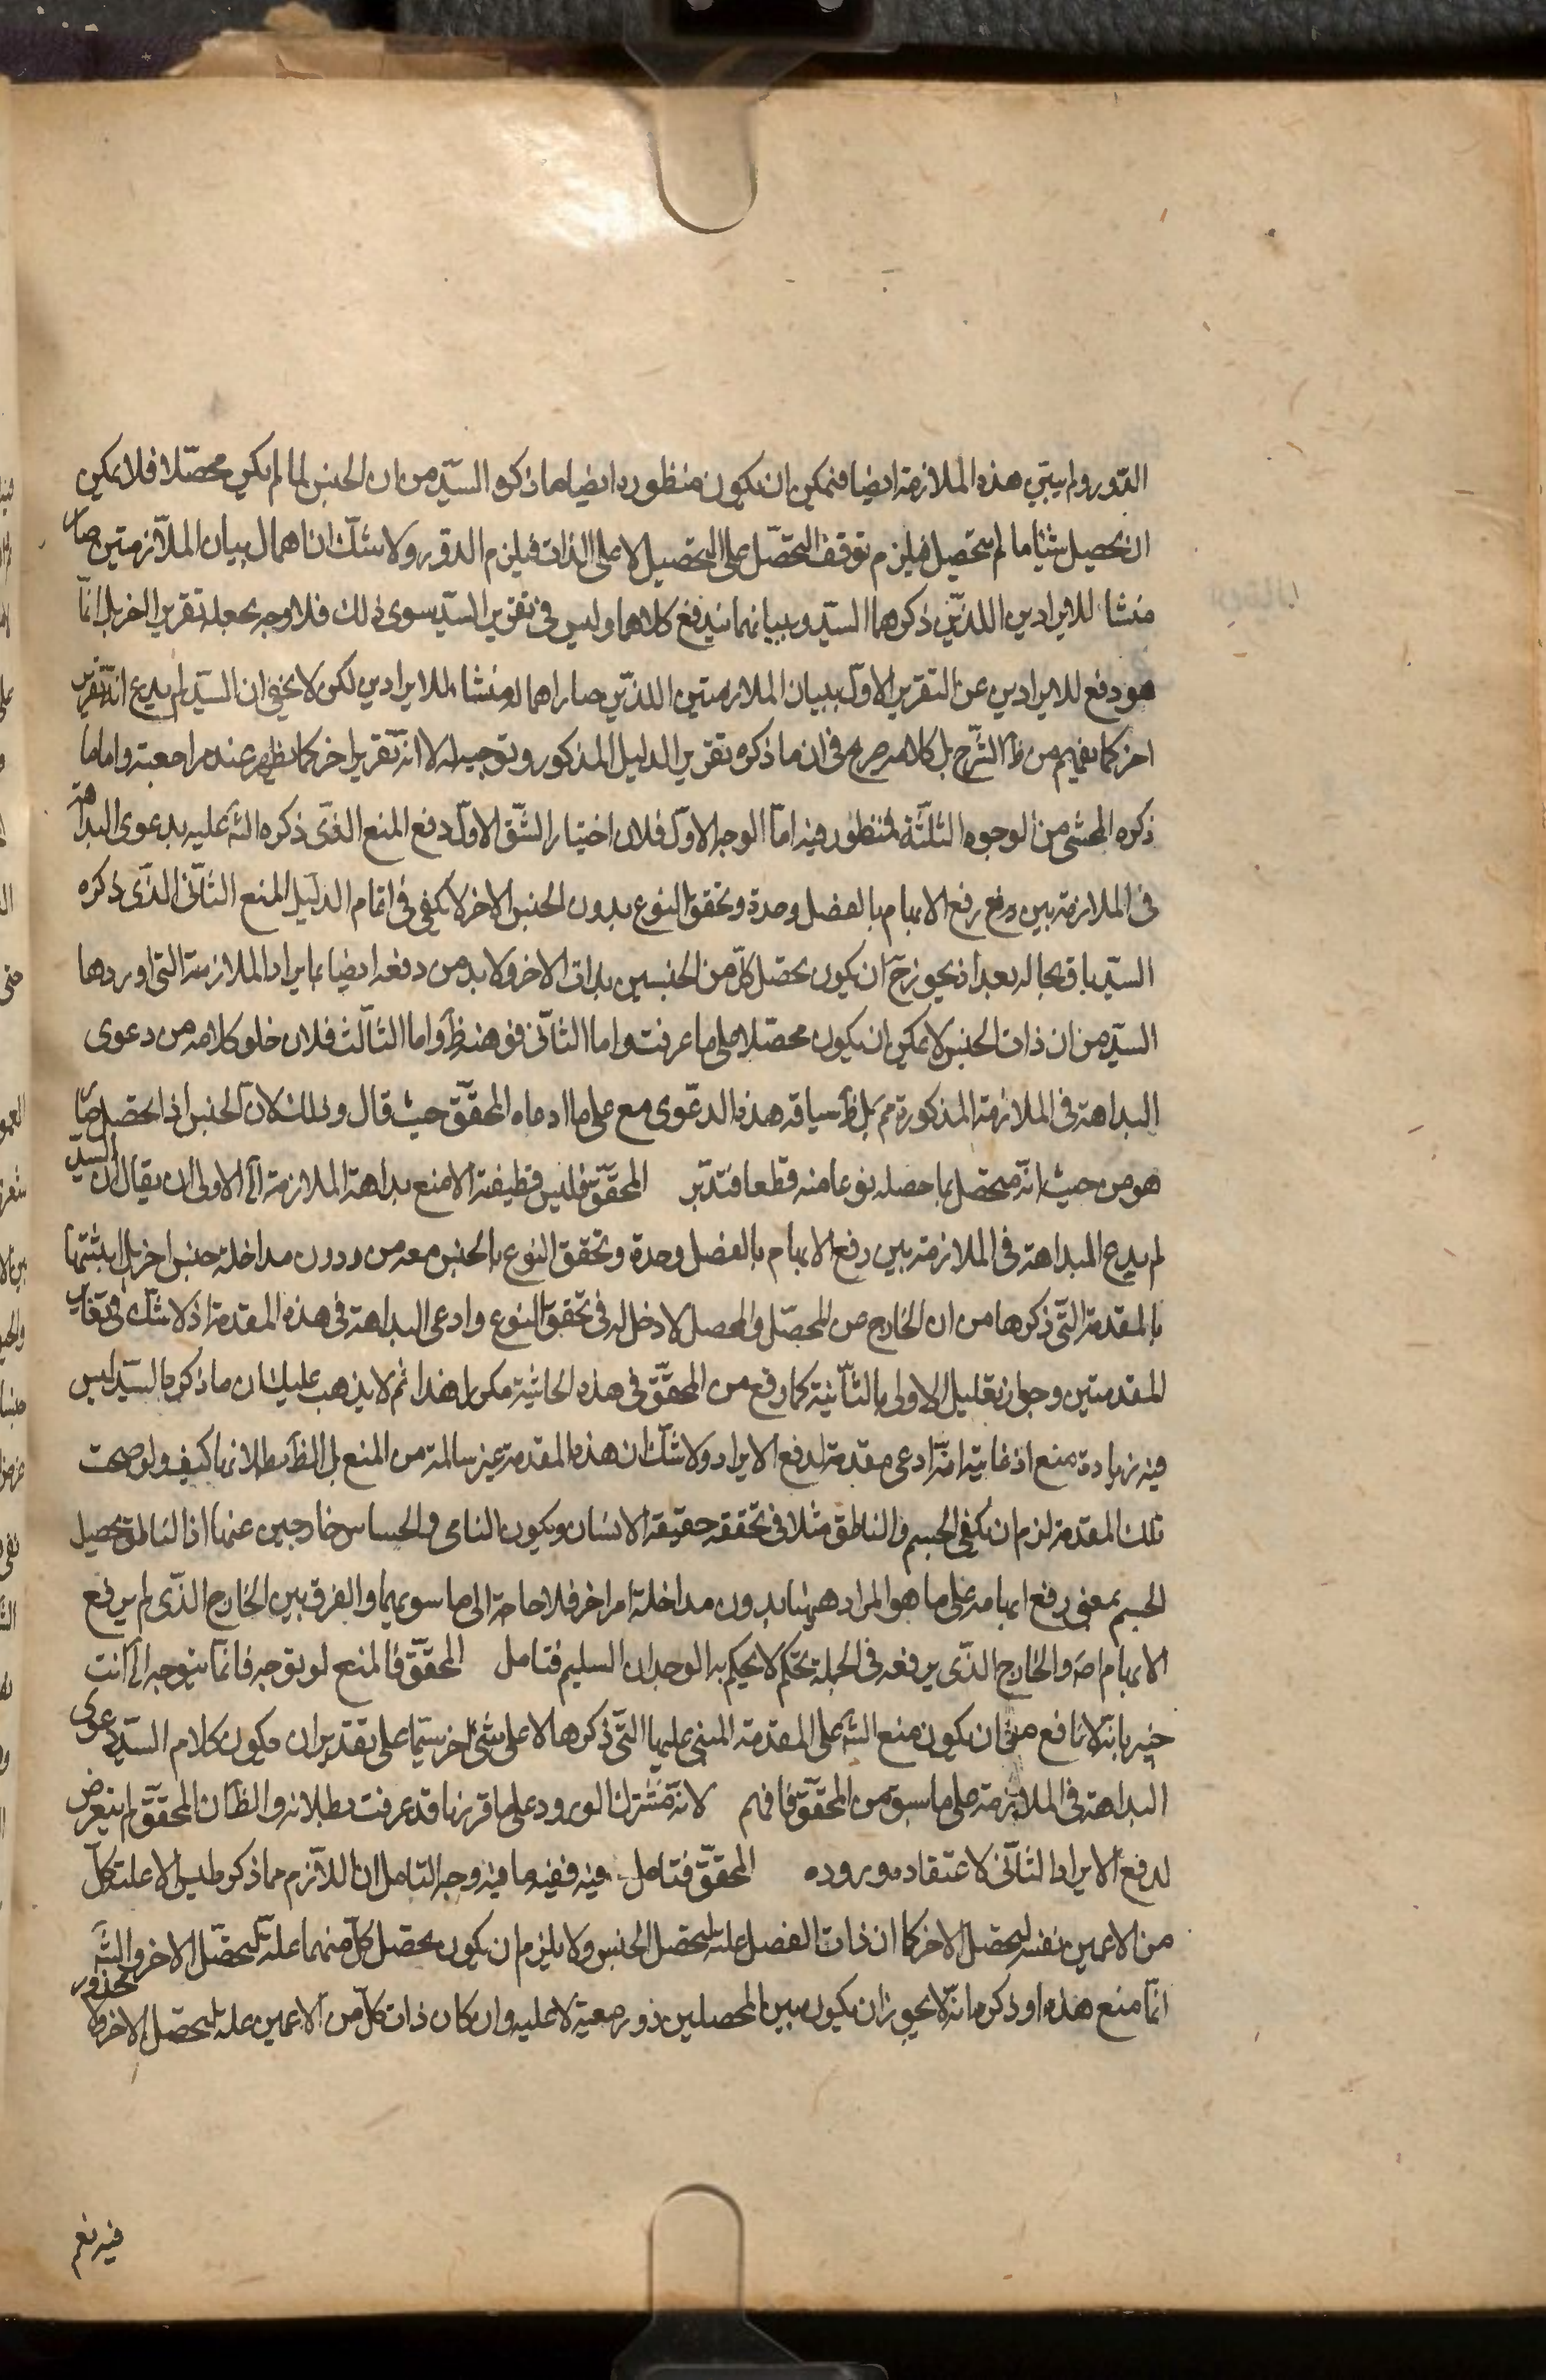 الدور ولم يبين هذه الملازمة ايضا فيمكن ان يكون منظوره ايضا ما ذكره السيد من ان الجنس لما لم يكن محصلا فلا يمكن
ان يحصل شيئا ما لم يتحصل فيلزم توقف التحصل على التحصيل لا على الذات فيلزم الدور ولا شك ان اهمال بيان الملازمتين صار
منشا للايرادين اللذين ذكرهما السيد وببيانهما يندفع كلاهما وليس في تقرير السيد سوى ذلك فلا وجه لجعله تقريرا اخر بل انما
هو دفع للايرادين عن التقرير الاول ببيان الملازمتين اللذين صار اهماله منشاء للايرادين لكن لا يخفى ان السيد لم يدع انه تقرير
اخر كما يفهم من ظ الشرح بل كلامه صريح في ان ما ذكره تقرير الدليل المذكور وتوجيه له لا انه تقرير اخر كما يظهر عند مراجعته واما ما
ذكره المحشى من الوجوه الثلثة فمنظور فيه اما الوجه الاول فلان اختيار الشق الاول دفع المنع الذى ذكره الش عليه بدعوى البداهة
فى الملازمة بين رفع الابهام بالفصل وحده وتحقق النوع بدون الجنس الاخر لا يكفى فى اتمام الدليل المنع الثانى الذى ذكره
السيد باق بحاله بعد اذ يجوز ح ان يكون تحصل كل من الجنسين بذات الاخر ولا بد من دفعه ايضا بايراد الملازمة التى اوردها
السيد من ان ذات الجنس لا يمكن ان يكون محصلا على ما عرفت واما الثانى فهو هذا واما الثالث فلان خلو كلامه من دعوى
البداهة فى الملازمة المذكورة مم بل ظ سياقه هذه الدعوى مع على ما ادعاه المحقق حيث قال وذلك لان الجنس اذا تحصل
هو من حيث انه متحصل بما حصله نوعا منه قطعا فتدبر المحقق فليس وظيفته الا منع بداهة الملازمة الخ الاولى ان يقال ان السيد
لم يدع البداهة فى الملازمة بين رفع الابهام بالفصل وحده وتحقق النوع بالجنس معه من دون مداخلة جنس اخر بل اثبتها
بالمقدمة التى ذكرها من ان الخارج من المحصل والمحصل لا دخل له فى تحقق النوع وادعى البداهة فى هذه المقدمة اذ لا شك فى تغاير
المقدمتين وجواز تعليل الاولى بالثانية كما وقع من المحقق فى هذه الحاشية مكررا هذا ثم لا يذهب عليك ان ما ذكره السيد ليس
فيه زيادة منع اذ غايته انه ادعى مقدمة لدفع الايراد ولا شك ان هذه المقدمة غير سالمة من المنع بل الظ بطلانها كيف ولو صحت
تلك المقدمة لزم ان يكفى الجسم والناطق مثلا فى تحققه حقيقة الانسان ويكون النامى والحساس خارجين عنها اذ الناطق يحصل
الجسم بمعنى رفع ابهامه على ما هو المراد ههنا بدون مداخلة امر اخر فلا حاجة الى ما سويهما والفرق بين الخارج الذى لم يرفع
الابهام اصلا والخارج الذى يرفعه فى الجملة تحكم لا يحكم به الوجدان السليم فتامل المحقق فالمنع لو توجه فانما يتوجه الخ انت
خبير بانه لا نافع من ان يكون منع الش على المقدمة المبنى عليها التى ذكرها لا على شئ اخر سيما على تقدير ان يكون كلام السيد دعوى
البداهة فى الملازمة على ما سبق من المحقق فافهم لانه مشترك الورود على ما قررنا قد عرفت بطلانه والظ ان المحقق لم يتعرض
لدفع الايراد الثانى لاعتقاد وروده المحقق فتامل فيه ففيه ما فيه وجه التامل ان اللازم مما ذكر ليس الا علية كل
من الاعمين بنفسه لتحصل الاخر كما ان ذات الفصل علة لتحصل الجنس ولا يلزم ان يكون تحصل كل منهما علة لتحصل الاخر والش
انما منع هذه او ذكر انه لا يجوز ان يكون بين المحصلين دور معية لا علية وان كان ذات كل من الاعمين علة لتحصل الاخر ولا محذور
فيه نعم